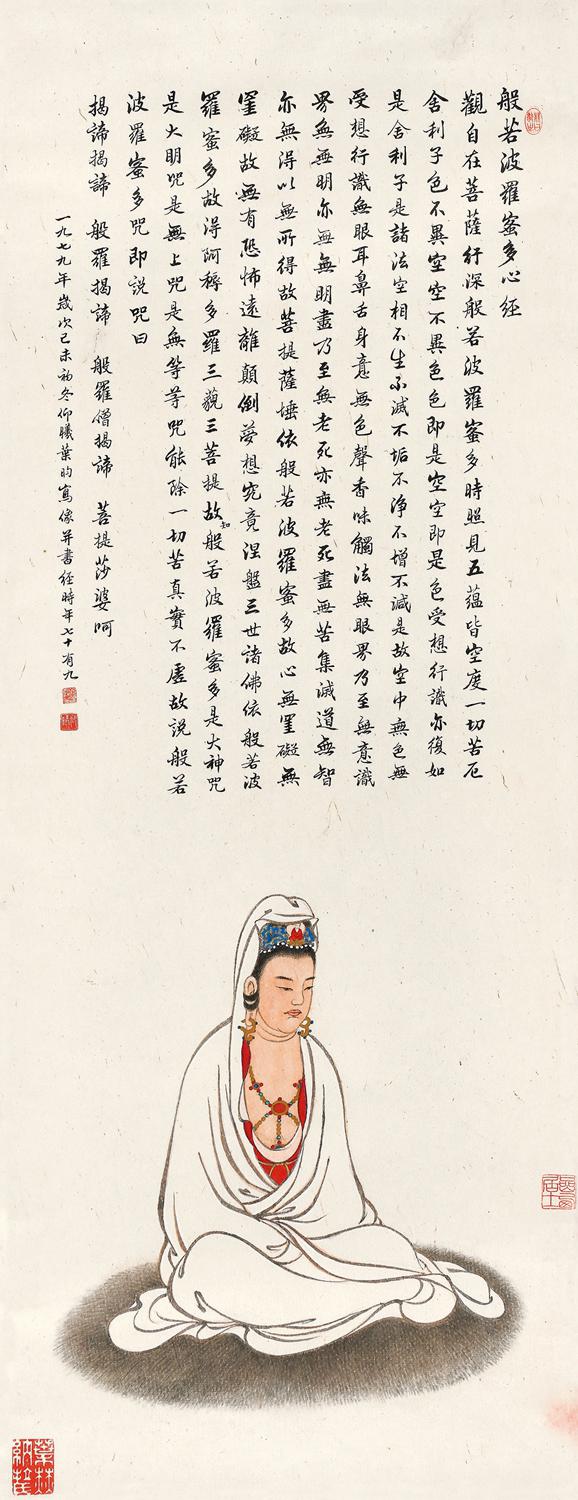 般若波羅蜜多心經
觀自在菩薩行深般若波羅蜜多時照見五蘊皆空度一切苦厄
舍利子色不異空空不異色色即是空空即是色受想行識亦復如
是舍利子是諸法空相不生不滅不垢不淨不增不減是故空中無色無
受想行識無眼耳鼻舌身意無色聲香味觸法無眼界乃至無意識
界無無明亦無無明盡乃至無老死亦無老死盡無苦集滅道無智
亦無得以無所得故菩提薩埵依般若波羅蜜多故心無罣礙無
罣礙故無有恐怖遠離顛倒夢想究竟涅盤三世諸佛依般若波
羅蜜多故得阿耨多羅三藐三菩提故知般若波羅蜜多是大神咒
是大明咒是無上咒是無等等咒能除一切苦真實不虛故說般若
波羅蜜多咒即說咒曰
揭諦揭諦 般羅揭諦 般羅僧揭諦 菩提莎婆呵
一九七九年歲次己未初冬仰曦葉昀寫像并書經時年七十有九